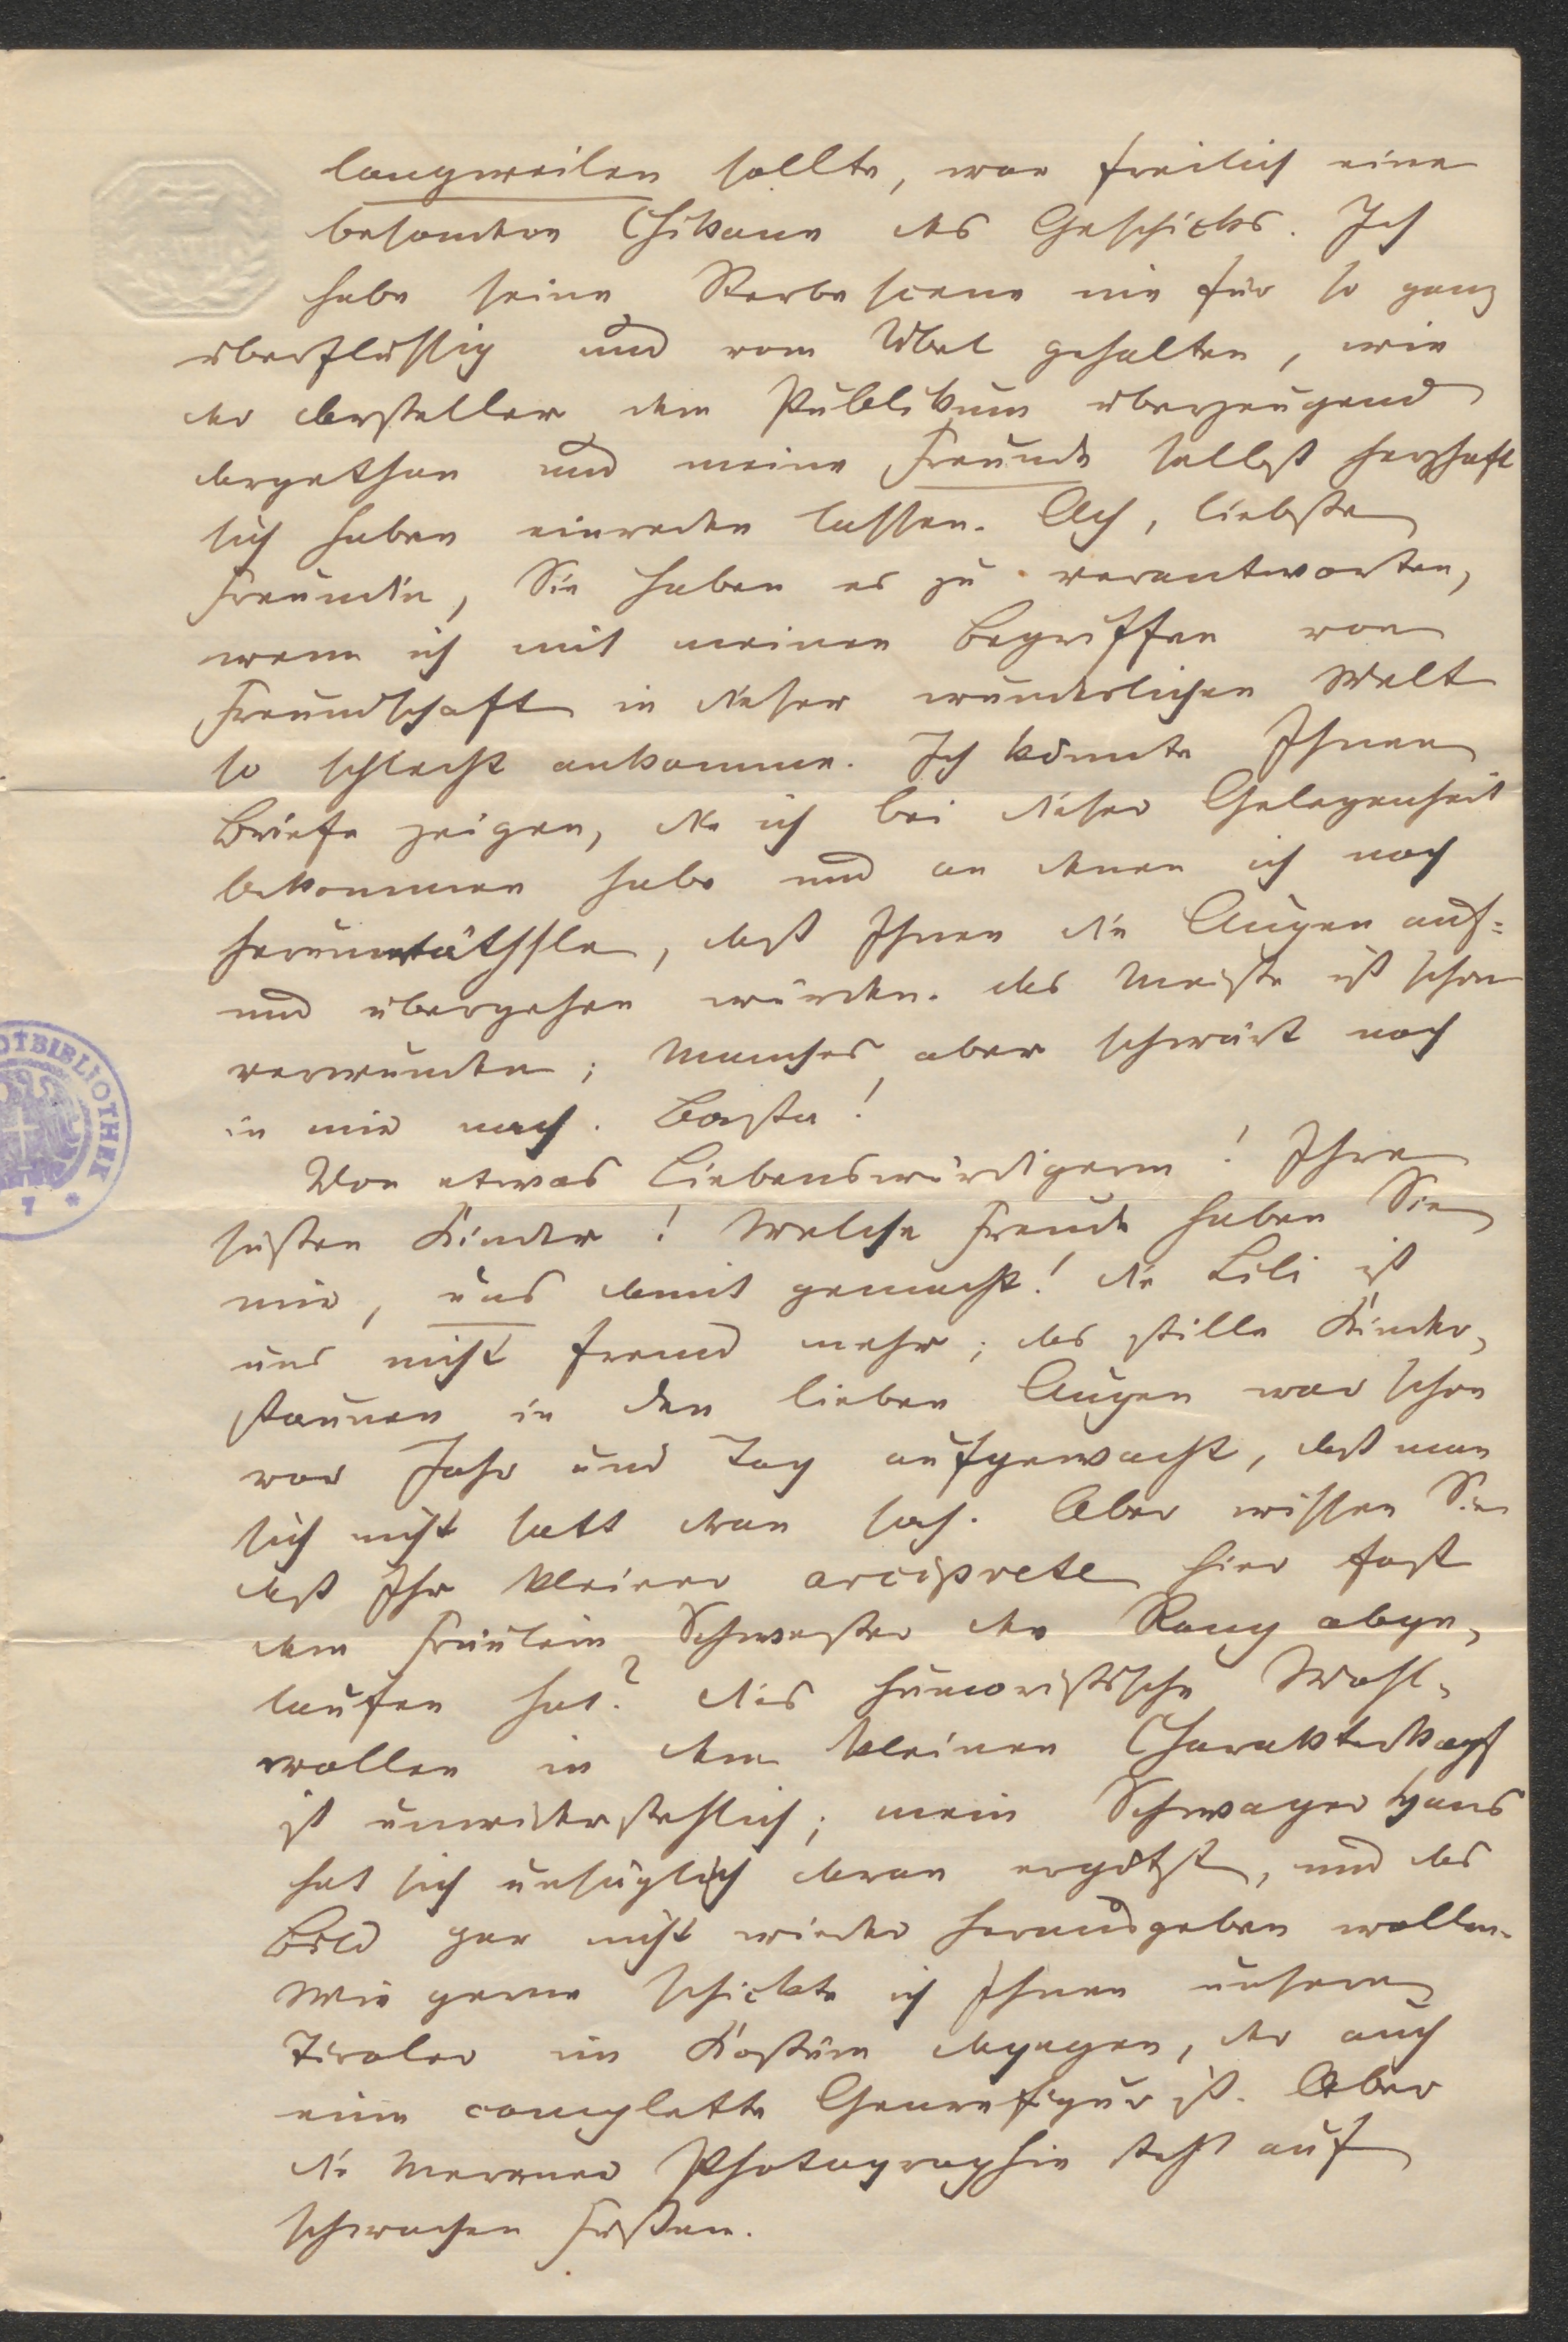 langweilen sollte, war freilich eine
besondere Chikane des Geschicks. Ich
habe seine Sterbescene nie für so ganz
überflüssig und vom Übel gehalten, wie
der Darsteller dem Publikum überzeugend
dargethan und meine Freunde selbst herzhaft
sich haben einreden lassen. Ach, liebste
Freundin, Sie haben es zu verantworten,
wenn ich mit meinen Begriffen von
Freundschaft in dieser wunderlichen Welt
so schlecht ankomme. Ich könnte Ihnen
Briefe zeigen, die ich bei dieser Gelegenheit
bekommen habe und an denen ich noch
herumräthsle, daß Ihnen die Augen auf-
und übergehen würden. Das Meiste ist schon
verwunden; Manches aber schwärt noch
in mir nach. Basta!
Von etwas Liebenswürdigerm! Ihre
süßen Kinder! Welche Freude haben Sie
mir, uns damit gemacht! Die Lili ist
uns nicht fremd mehr; das stille Kinder-
staunen in den lieben Augen war schon
vor Jahr und Tag aufgewacht, daß man
sich nicht satt dran sah. Aber wissen Sie
daß Ihr kleiner arciprete hier fast
dem Fräulein Schwester den Rang abge-
laufen hat? Dies humoristische Wohl-
wollen in dem kleinen Charakterkopf
ist unwiderstehlich; mein Schwager Hans
hat sich unsäglich daran ergötzt, und das
Bild gar nicht wieder herausgeben wollen.
Wie gerne schickte ich Ihnen unsern
Tiroler im Kostüm dagegen, der auch
eine complette Genrefigur ist. Aber
die Meraner Photographie steht auf
schwachen Füßen.
OTBIBLIOTHEK
7 *